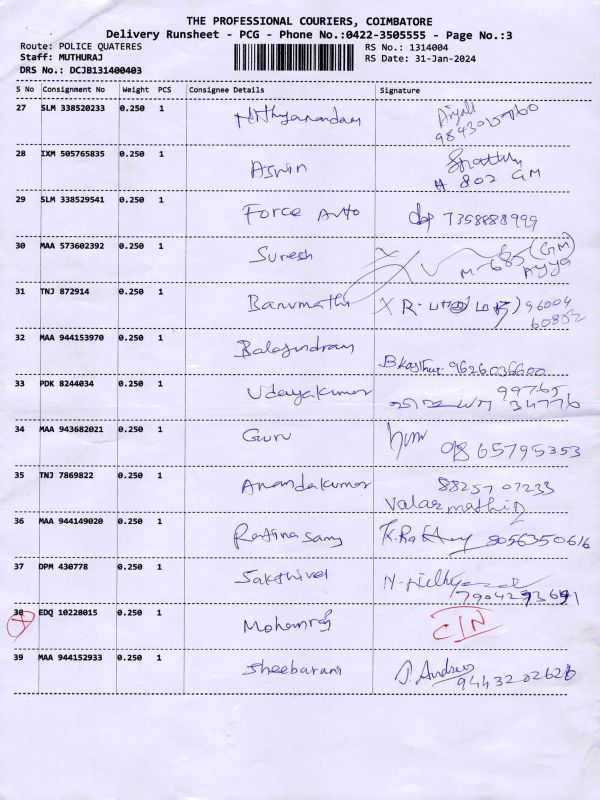 THE PROFESSIONAL COURIERS, COIMBATORE
Delivery Runsheet - PCG - Phone No.:0422-3505555 - Page No.:3
Route: POLICE QUATERES RS No.: 1314004
Staff: MUTHURAJ RS Date: 31-Jan-2024
DRS No.: DCJB131400403
S No Consignment No Weight PCS Consignee Details Signature
27 SLM 338520233 0.250 1 Nithyanandam
28 IXM 505765835 0.250 1 Aswin
# 802 GM
29 SLM 338529541 0.250 1 Force Auto 7358888999
30 MAA 573602392 0.250 1 Suresh M-685 (GM)
Ayya
31 TNJ 872914 0.250 1 Banumathi X R. 96004
60852
32 MAA 944153970 0.250 1 Balajindram
9626036600
33 PDK 8244034 0.250 1 Udayakumar 99765
34776
34 MAA 943682021 0.250 1 Guru 9865795353
35 TNJ 7869822 0.250 1 Anandakumar 88257 07233
Valarmathi
36 MAA 944149020 0.250 1 Rathnasamy 8056350616
37 DPM 430778 0.250 1 Sakthivel
7904293691
38 EDQ 10228015 0.250 1 Mohanraj CIN
39 MAA 944152933 0.250 1 Sheebarani J. Andrew
9443202626